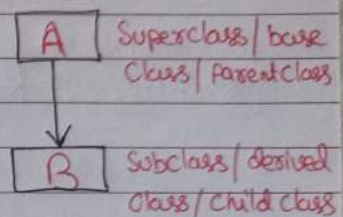 A
Superclass / base
Class / Parent Class
B
Subclass / derived
Class / Child Class